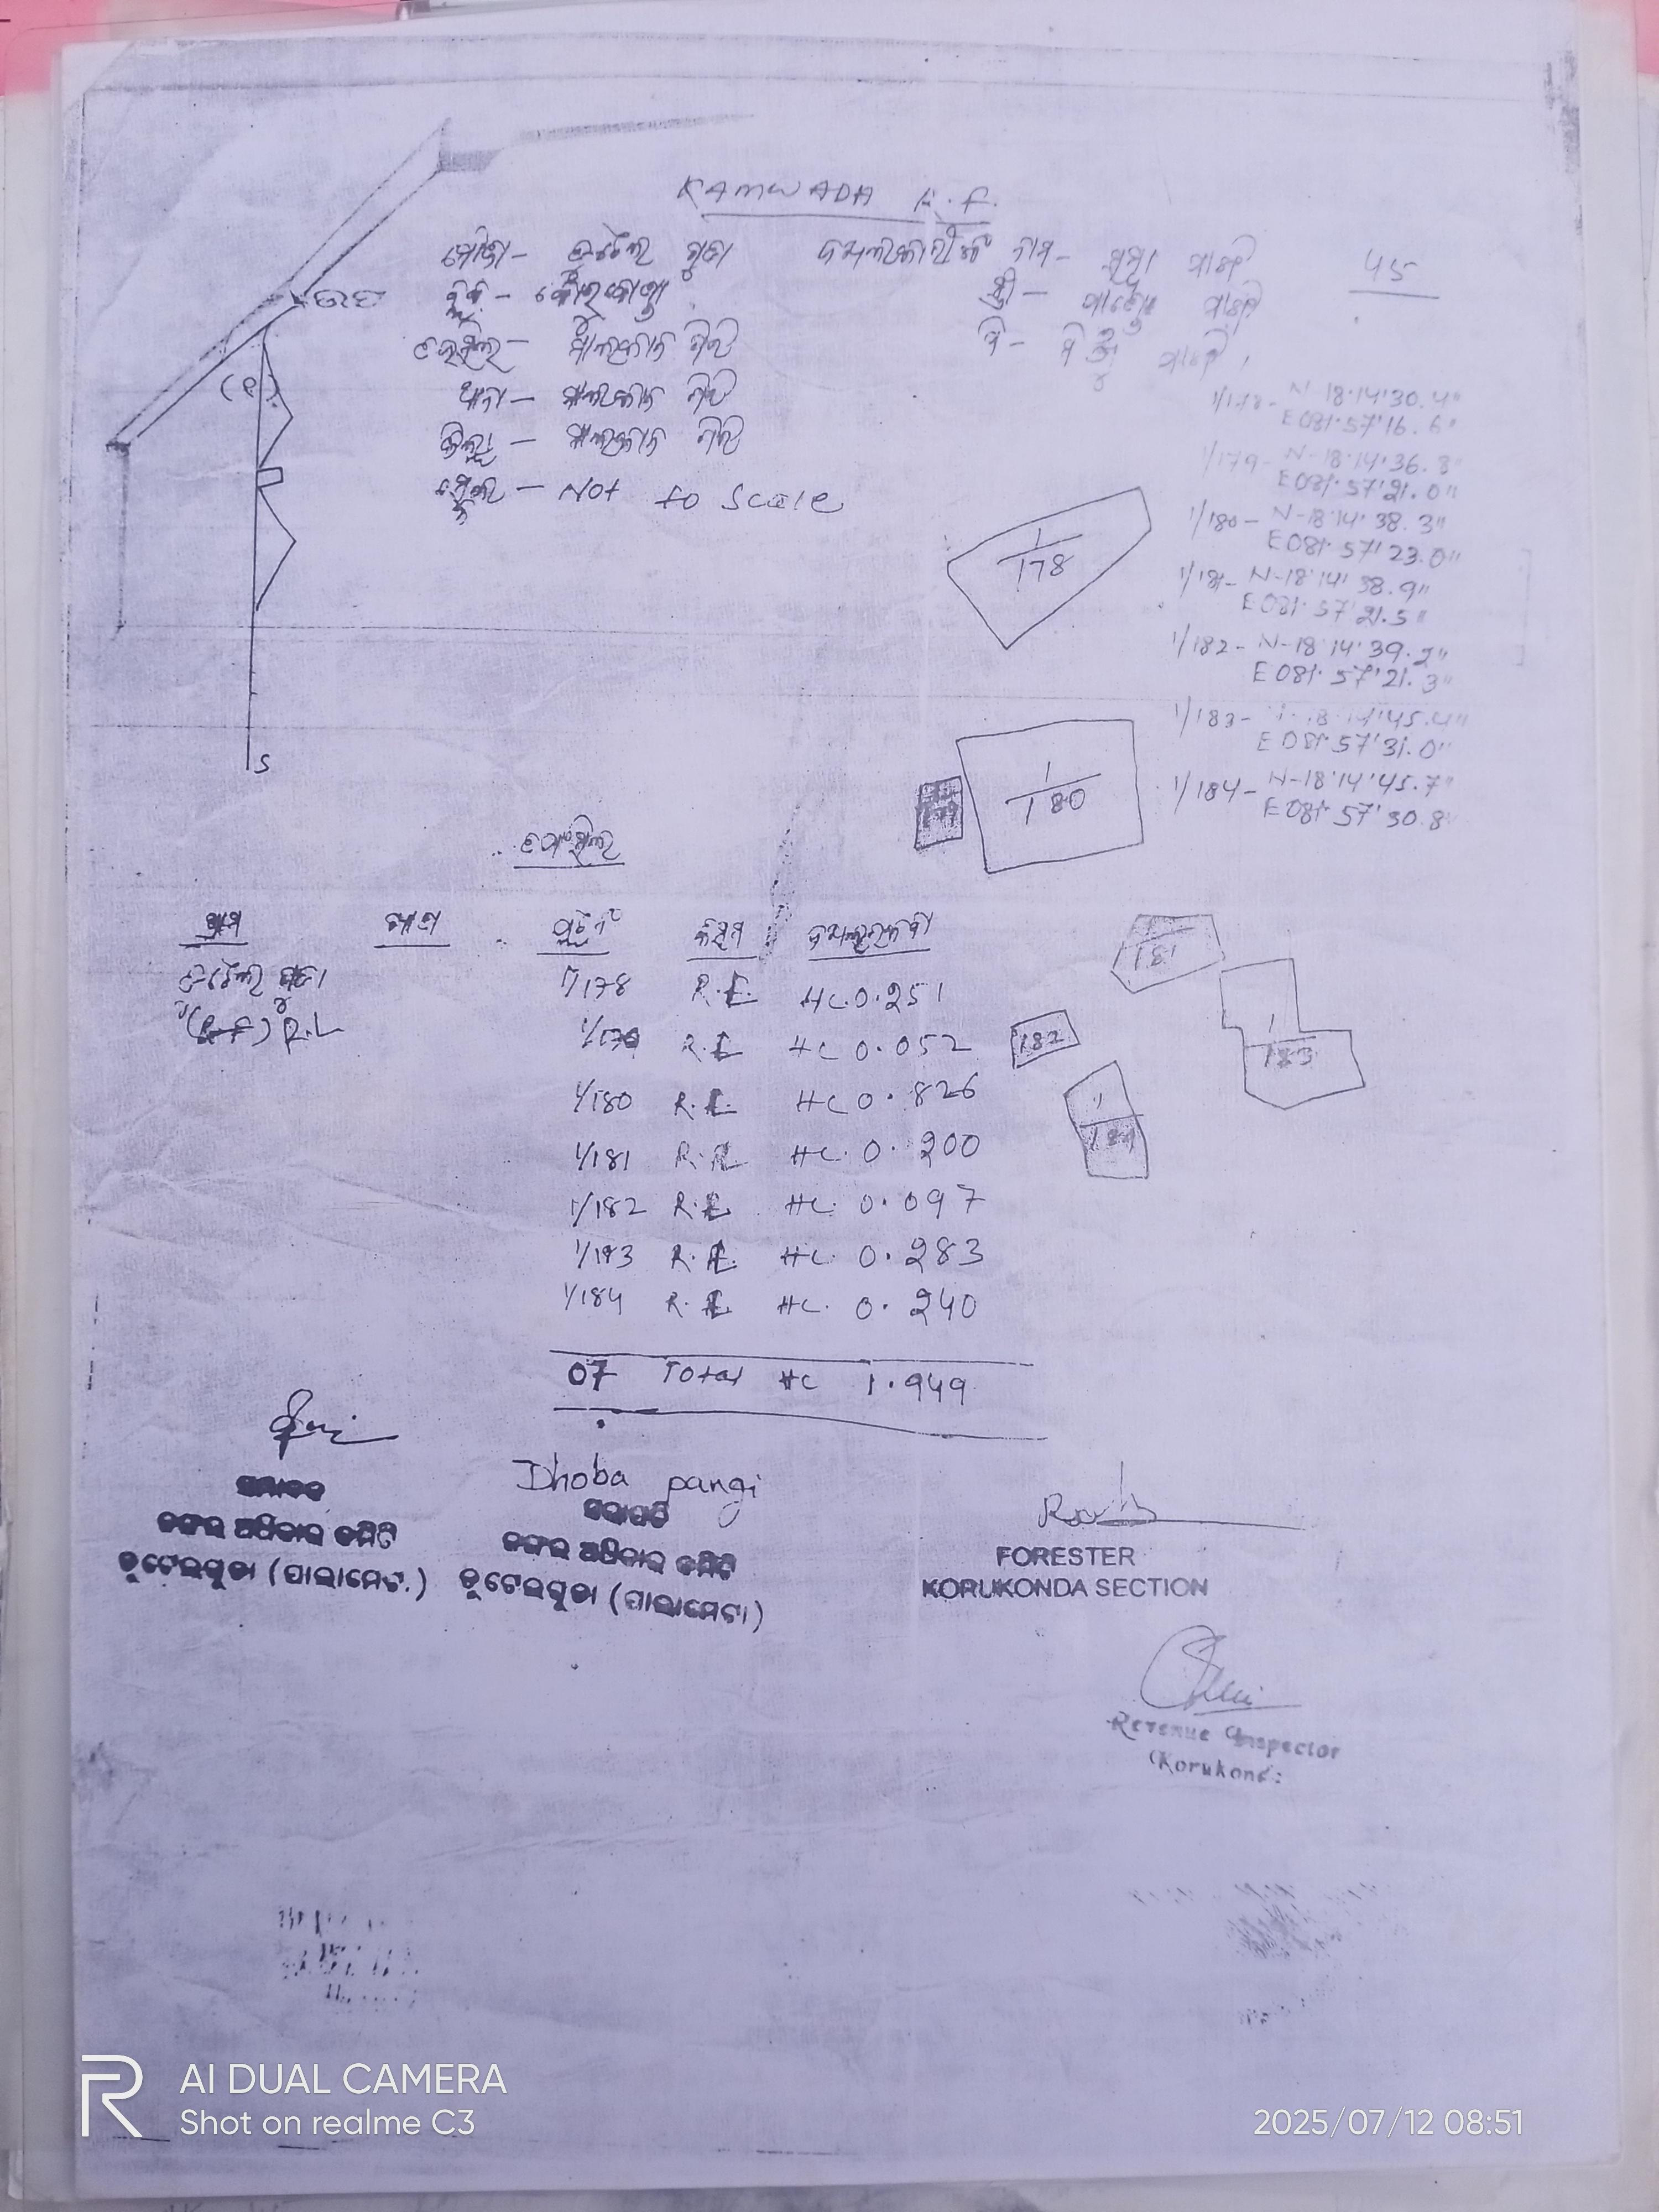 KAMWADA R.F.
ମୌଜା- ଚୁଟେଲ ଗୁଡା ଦଖଲକାରୀଙ୍କ ନାମ- ପାଙ୍ଗି 45
ବ୍ଲକ - କୋରକୋଣ୍ଡା ସ୍ତ୍ରୀ- ପାଙ୍ଗି
ଉପ
ତହସିଲ- ମାଲକାନ ଗିରି ପି- ପାଙ୍ଗି
ଥାନା- ମାଲକାନ ଗିରି
ଜିଲ୍ଲା - ମାଲକାନ ଗିରି
ସ୍କେଲ - Not to Scale
1/178- N-18°14'30.4"
E 081°57'16.6"
1/179- N-18°14'36.8"
E 081°57'21.0"
1/180- N-18°14'38.3"
E 081°57'23.0"
1/181- N-18°14'38.9"
E 081°57'21.5"
1/182- N-18°14'39.2"
E 081°57'21.3"
1/183- N-18°14'45.4"
E 081°57'31.0"
1/184- N-18°14'45.7"
E 081°57'30.8"
1/178
1/180
S
181
182
1/183
1/184
ତଫସିଲ
ଗ୍ରାମ ଖାତା ପ୍ଲଟ ନଂ କିସମ ଦଖଲ ରକବା
ଚୁଟେଲ ଗୁଡା 1/178 R.F. HC 0.251
(R.F) R.L 1/179 R.F HC 0.052
1/180 R.F. HC 0.826
1/181 R.F HC. 0.200
1/182 R.F. HC. 0.097
1/183 R.F. HC. 0.283
1/184 R.F HC. 0.240
07 Total HC 1.949
Dhoba pangi
ସଭାପତି
ଜଙ୍ଗଲ ଅଧିକାର କମିଟି ଜଙ୍ଗଲ ଅଧିକାର କମିଟି
ଚୁଟେଲଗୁଡା (ପାଲାମେଟା) ଚୁଟେଲଗୁଡା (ପାଲାମେଟା)
FORESTER
KORUKONDA SECTION
Revenue Inspector
AI DUAL CAMERA
Shot on realme C3
2025/07/12 08:51